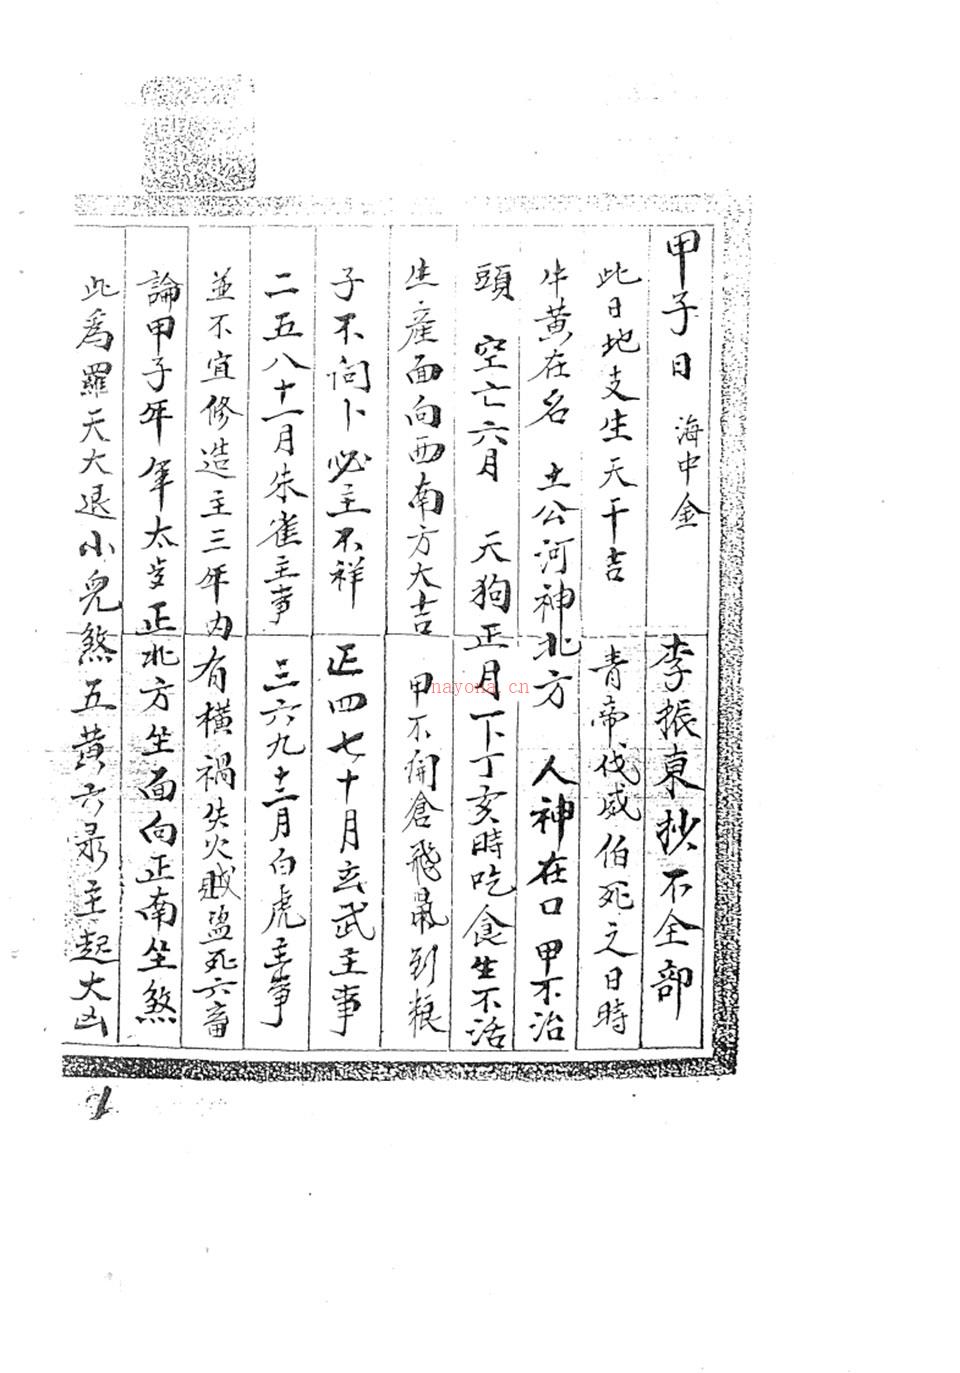 甲子日 海中金 李振東抄不全部
此日地支生天干吉 青帝伐威伯死之日時
牛黄在名 土公河神北方 人神在口 甲不治
頭 空亡六月 天狗正月下丁亥時吃食生不活
生產面向西南方大吉 甲不開倉飛鼠到粮
子不问卜必主不祥 正四七十月玄武主事
二五八十一月朱雀主事 三六九十二月白虎主事
並不宜修造主三年内有橫禍失火贼盜死六畜
論甲子年 年太歩正北方坐面向正南坐煞
此爲羅天大退小兒煞五黄六录主起大凶
1
nayona.cn